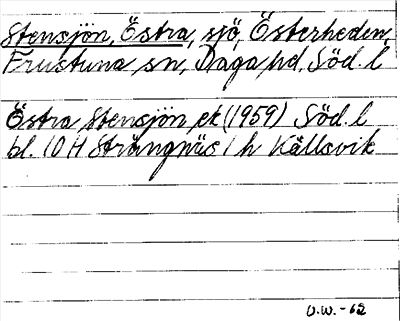 Stensjön, Östra, sjö, Österheden,
Frustuna sn, Daga hd, Söd. l
Östra Stensjön ek (1959) Söd. l
bl. 10 H Strängnäs / h Källsvik
U.W. -62